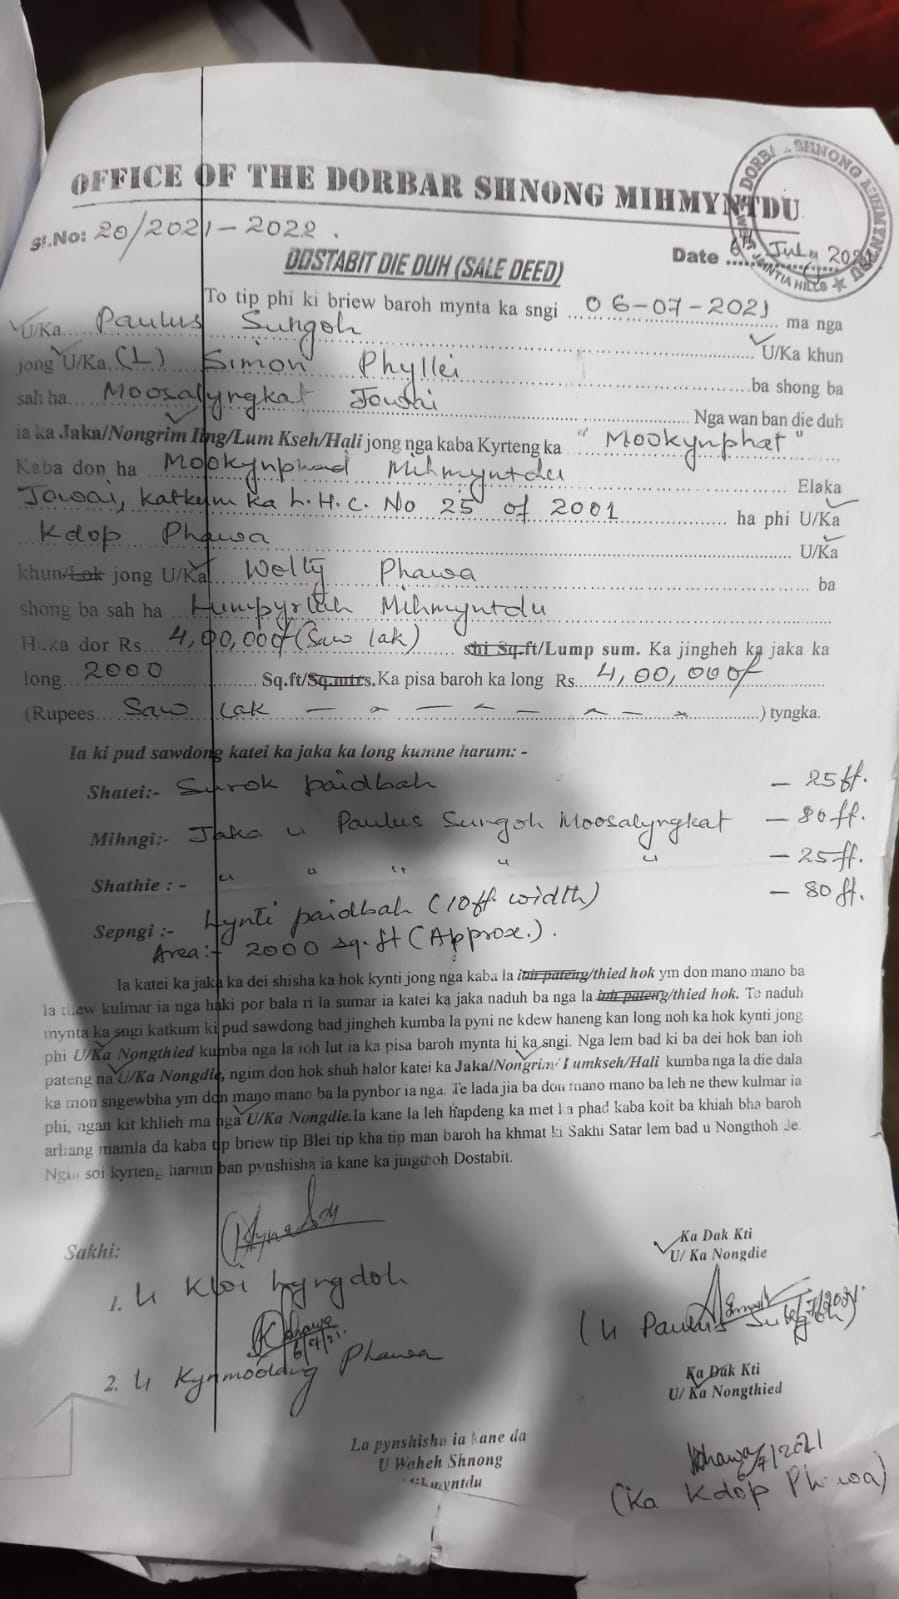 OFFICE OF THE DORBAR SHNONG MIHMYNTDU
Sl.No: 20/2021-2022.
Date 6th July 2021
DOSTABIT DIE DUH (SALE DEED)
To tip phi ki briew baroh mynta ka sngi 06-07-2021 ma nga
U/Ka Paulus Sungoh U/Ka khun
jong U/Ka (L) Simon Phyllei ba shong ba
sah ha Moosalyngkat Jowai Nga wan ban die duh
ia ka Jaka/Nongrim Iing/Lum Kseh/Hali jong nga kaba Kyrteng ka "Mookynphat"
Kaba don ha Mookynphad Mihmyntdu Elaka
Jowai, katkum ka h.H.C. No 25 of 2001 ha phi U/Ka
Kdop Phawa U/Ka
khun/Lok jong U/Ka Welly Phawa ba
shong ba sah ha Lumpyrtah Mihmyntdu
Haka dor Rs. 4,00,000/ (Saw lak) shi Sq.ft/Lump sum. Ka jingheh ka jaka ka
long 2000 Sq.ft/Sq.mtrs. Ka pisa baroh ka long Rs. 4,00,000/
(Rupees Saw Lak ) tyngka.
Ia ki pud sawdong katei ka jaka ka long kumne harum: -
Shatei:- Surok paidbah - 25 ft.
Mihngi:- Jaka u Paulus Sungoh Moosalyngkat - 80 ft.
Shathie : - " " " " " - 25 ft.
Sepngi :- Lynti paidbah (10 ft. width) - 80 ft.
Area:- 2000 sq. ft (Approx.).
Ia katei ka jaka ka dei shisha ka hok kynti jong nga kaba la ioh pateng/thied hok ym don mano mano ba
la thew kulmar ia nga haki por bala ri la sumar ia katei ka jaka naduh ba nga la ioh pateng/thied hok. Te naduh
mynta ka sngi katkum ki pud sawdong bad jingheh kumba la pyni ne kdew haneng kan long noh ka hok kynti jong
phi U/Ka Nongthied kumba nga la ioh lut ia ka pisa baroh mynta hi ka sngi. Nga lem bad ki ba dei hok ban ioh
pateng na U/Ka Nongdie, ngim don hok shuh halor katei ka Jaka/Nongrim/ Lumkseh/Hali kumba nga la die dala
ka mon sngewbha ym don mano mano ba la pynbor ia nga. Te lada jia ba don mano mano ba leh ne thew kulmar ia
phi, ngan kit khlieh ma nga U/Ka Nongdie. Ia kane la leh hapdeng ka met ka phad kaba koit ba khiah bha baroh
arliang mamla da kaba tip briew tip Blei tip kha tip man baroh ha khmat ki Sakhi Satar lem bad u Nongthoh Je.
Ngi soi kyrteng harum ban pynshisha ia kane ka jingthoh Dostabit.
Sakhi:
1. U Kloi Lyngdoh
Phawa
6/7/21.
2. U Kynmoodang Phawa
Ka Dak Kti
U/ Ka Nongdie
(U Paulus Sungoh)
Ka Dak Kti
U/ Ka Nongthied
Phawa 6/7/2021
(Ka Kdop Phawa)
La pynshisha ia kane da
U Waheh Shnong